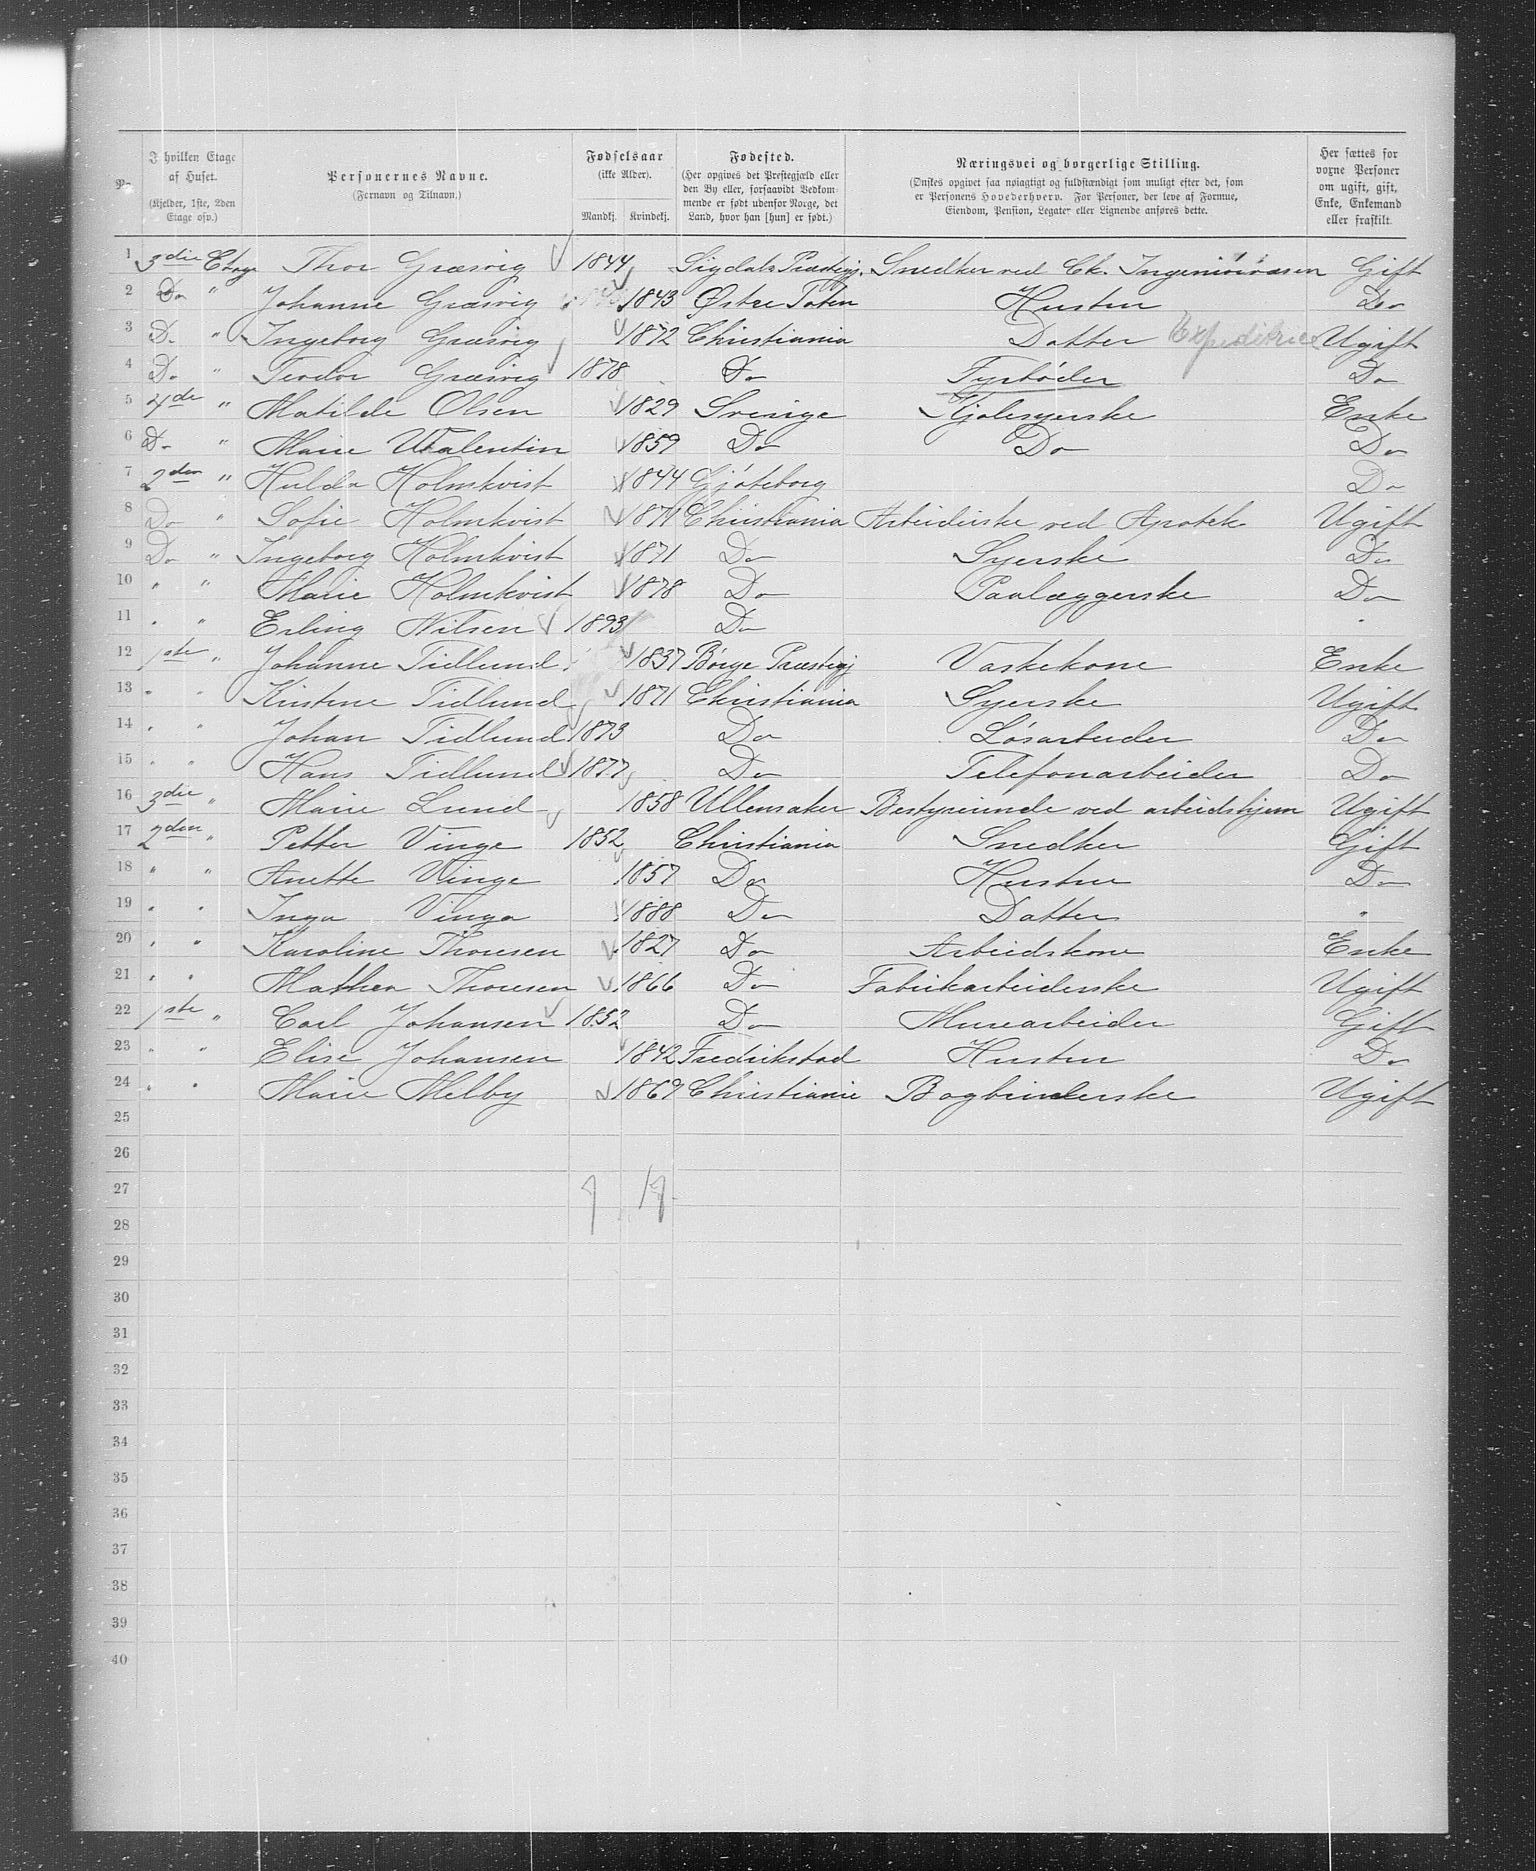 No.
I hvilken Etage af Huset. (Kjelder, 1ste, 2den Etage osv.)
Personernes Navne. (Fornavn og Tilnavn.)
Fødselsaar (ikke Alder). Mandkj. Kvindekj.
Fødested. (Her opgives det Prestegjæld eller den By eller, forsaavidt Vedkommende er født udenfor Norge, det Land, hvor han [hun] er født.)
Næringsvei og borgerlige Stilling. (Ønskes opgivet saa nøiagtigt og fuldstændigt som muligt efter det, som er Personens Hovederhverv. For Personer, der leve af Formue, Eiendom, Pension, Legater eller Lignende anføres dette.
Her sættes for voxne Personer om ugift, gift, Enke, Enkemand eller fraskilt.
1 3die Etage Thor Græsvig 1844 Sigdals Præstegj. Snedker ved Ch. Gift
2 Do " Johanne Græsvig 1843 Østre Toten Hustru Do
3 Do " Ingeborg Græsvig 1872 Christiania Datter Expeditrice Ugift
4 Do " Teodor Græsvig 1878 Do Fyrbøder Do
5 4de " Matilde Olsen 1829 Sverige Kjolesyerske Enke
6 Do " Marie Valentin 1859 Do Do Do
7 2den " Hulda Holmkvist 1844 Gjøteborg Do
8 Do " Sofie Holmkvist 1871 Christiania Arbeiderske ved Apothek Ugift
9 Do " Ingeborg Holmkvist 1871 Do Syerske Do
10 " " Marie Holmkvist 1878 Do Paalæggerske Do
11 " " Erling Nilsen 1893 Do "
12 1ste " Johanne Tidlund 1837 Borge Præstegj Vaskekone Enke
13 " " Kristine Tidlund 1871 Christiania Syerske Ugift
14 " " Johan Tidlund 1873 Do Løsarbeider Do
15 " " Hans Tidlund 1877 Do Telefonarbeider Do
16 3die " Marie Lund 1858 Ullensaker Bestyrerinde ved arbeidshjem Ugift
17 2den " Petter Vinge 1852 Christiania Snedker Gift
18 " " Anette Vinge 1857 Do Hustru Do
19 " " Inga Vinge 1888 Do Datter "
20 " " Karoline Thoresen 1827 Do Arbeidskone Enke
21 " " Mathea Thoresen 1866 Do Fabrikarbeiderske Ugift
22 1ste " Carl Johansen 1852 Do Murearbeider Gift
23 " " Elise Johansen 1842 Fredrikstad Hustru Do
24 " " Marie Melby 1869 Christiania Bogbinderske Ugift
25
26
27 7 17
28
29
30
31
32
33
34
35
36
37
38
39
40